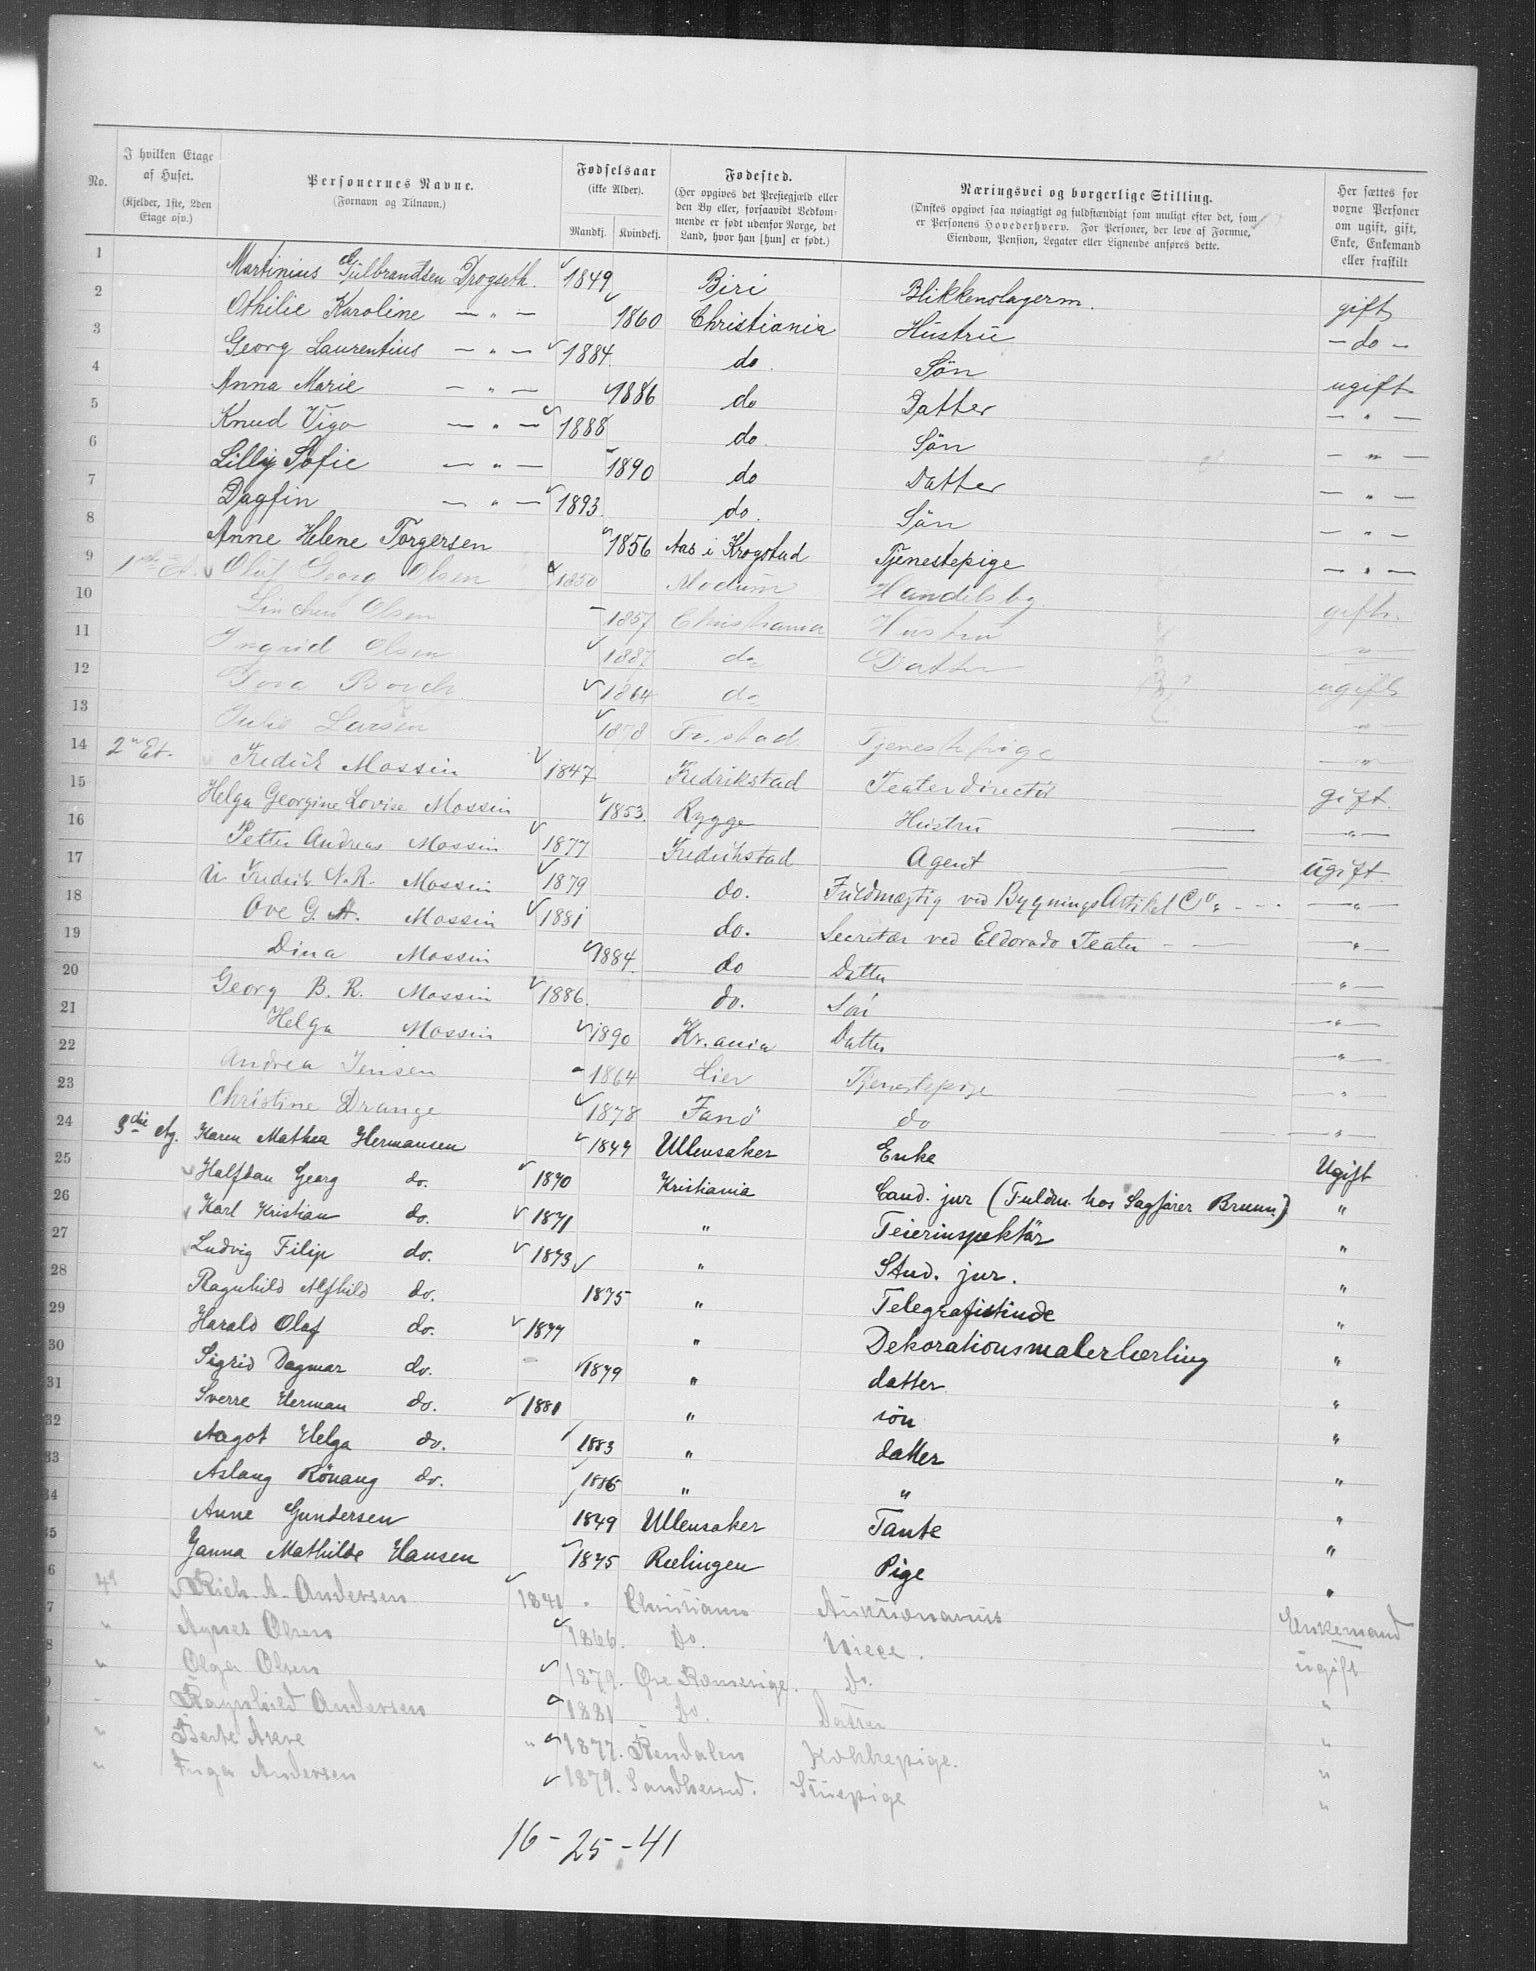 No. | I hvilken Etage af Huset. (Kjelder, 1ste, 2den Etage osv.) | Personernes Navne. (Fornavn og Tilnavn.) | Fødselsaar (ikke Alder). Mandkj. Kvindekj. | Fødested. (Her opgives det Præstegjæld eller den By eller, forsaavidt Vedkommende er født udenfor Norge, det Land, hvor han [hun] er født.) | Næringsvei og borgerlige Stilling. (Ønskes opgivet saa nøiagtigt og fuldstændigt som muligt efter det, som er Personens Hovederhverv. For Personer, der leve af Formue, Eiendom, Pension, Legater eller Lignende anføres dette. | Her sættes for voxne Personer om ugift, gift, Enke, Enkemand eller fraskilt
1 Martinius Gulbrandsen Drogseth. 1849 Biri Blikkenslagerm. gift
2 Othilie Karoline — „ — 1860 Christiania Hustru — do —
3 Georg Laurentius — „ — 1884 do. Søn ugift
4 Anna Marie — „ — 1886 do Datter — „ —
5 Knud Vigo — „ — 1888 do. Søn — „ —
6 Lilly Sofie — „ — 1890 do Datter — „ —
7 Dagfin — „ — 1893 do. Søn — „ —
8 Anne Helene Torgersen 1856 Aas i Krogstad Tjenestepige — „ —
9 1ste Et. Oluf Georg Olsen 1850 Modum Handelsbg. gift.
10 Olsen 1857 Christiania Hustru „
11 Ingrid Olsen 1887 do Datter ugift
12 Tora Borch 1864 do „
13 Julie Larsen 1878 Fr.stad Tjenestepige „
14 2n Et. Fredrik Mossin 1847 Fredrikstad Teaterdirectør gift.
15 Helga Georgine Lovise Mossin 1853. Rygge Hustru — „ —
16 Petter Andreas Mossin 1877 Fredrikstad Agent ugift.
17 Fredrik N. R. Mossin 1879 do. Fuldmægtig ved BygningsArtikel Co. — „ —
18 Ove G. A. Mossin 1881 do. Secretær ved Eldorado Teater — „ —
19 Dina Mossin 1884. do Datter — „ —
20 Georg B. R. Mossin 1886. do. Søn — „ —
21 Helga Mossin 1890 Kr.ania Datter — „ —
22 Andrea Jensen 1864 Lier Tjenestepige „
23 Christine Drange 1878 Fanø do — „ —
24 3die Etg. Karen Mathea Hermansen 1849 Ullensaker Enke Ugift
25 Halfdan Georg do. 1870 Kristiania Cand. jur (Fuldm. hos Sagfører Bruun.) „
26 Karl Kristian do. 1871 „ Feierinspektør „
27 Ludvig Filip do. 1873 „ Stud. jur. „
28 Ragnhild Alfhild do. 1875 „ Telegrafistinde „
29 Harald Olaf do. 1877 „ Dekorationsmalerlærling „
30 Sigrid Dagmar do. 1879 „ datter „
31 Sverre Herman do. 1881 „ søn „
32 Aagot Helga do. 1883 „ datter „
33 Aslaug Rönaug do. 1886 „ „ „
34 Anne Gundersen 1849 Ullensaker Tante „
35 Janna Mathilde Hansen 1875 Rælingen Pige „
6 4d Rich. A. Andersen 1841 Christiania Auktionarius Enkemand
7 „ Agnes Olsen 1866. Do. Niece. ugift
8 „ Olga Olsen 1879. Øvre Romerige. Do. „
9 Ragnhild Andersen 1881 Do. Datter „
„ Berte Akre 1877. Rendalen Kokkepige. „
„ Inga Andersen 1879. Sandsværd. Stuepige „
16 - 25 - 41